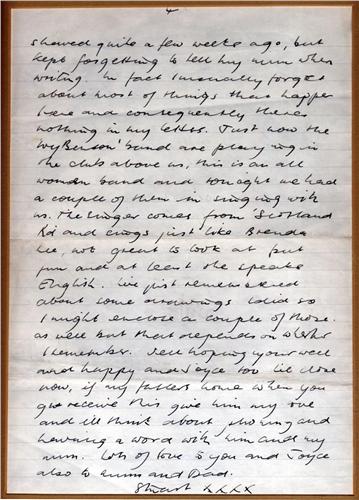 4
shaved quite a few weeks ago, but
kept forgetting to tell my mum when
writing. In fact I usually forget
about most of things that happen
here and consequently theres
nothing in my letters. Just now the
Ivy Benson band are playing in
the club above us, this is an all
woman band and tonight we had
a couple of them in singing with
us. The singer comes from Scotland
Rd and sings just like Brenda
Lee, not great to look at but
fun and at least she speaks
English. Ive just remembered
about some drawings I did so
I might enclose a couple of those
as well but that depends on whether
I remember. Well hoping your well
and happy and Joyce too I'll close
now, if my fathers home when you
receive this give him my love
and i'll think about phoning and
having a word with him and my
mum. Lots of love to you and Joyce
also to mum and Dad.
Stuart xxxx